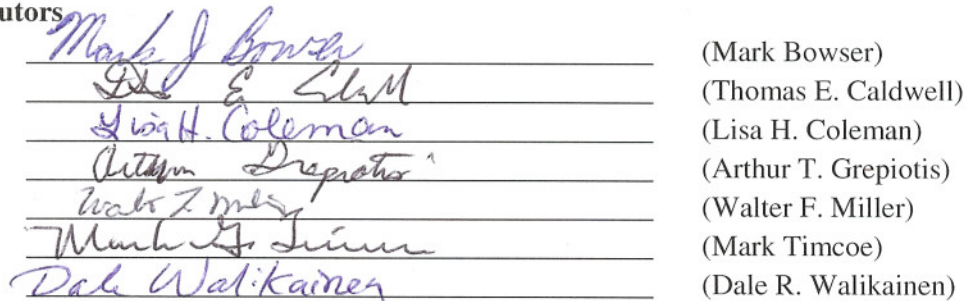 utors
Mark J Bowser (Mark Bowser)
E (Thomas E. Caldwell)
Lisa H. Coleman (Lisa H. Coleman)
Arthur Grepiotis (Arthur T. Grepiotis)
(Walter F. Miller)
Mark G. (Mark Timcoe)
Dale Walikainen (Dale R. Walikainen)